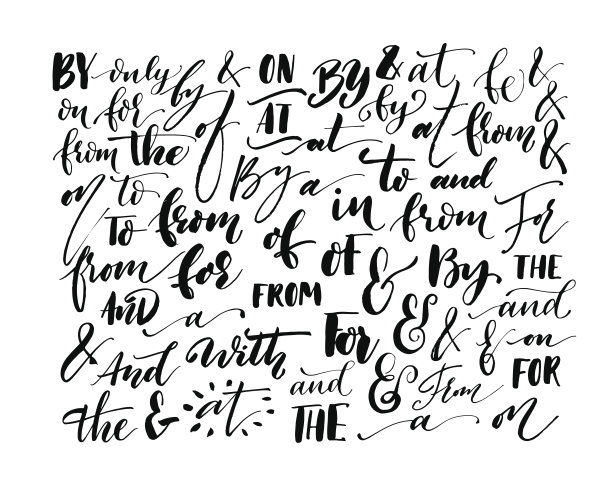 BY only by & ON BY & at fe &
on for of AT at by at from &
from the By a to and &
on to in from For
To from of OF & By THE
from for FROM and
AND a For & & & on
& And with and & From FOR
the & at THE a on